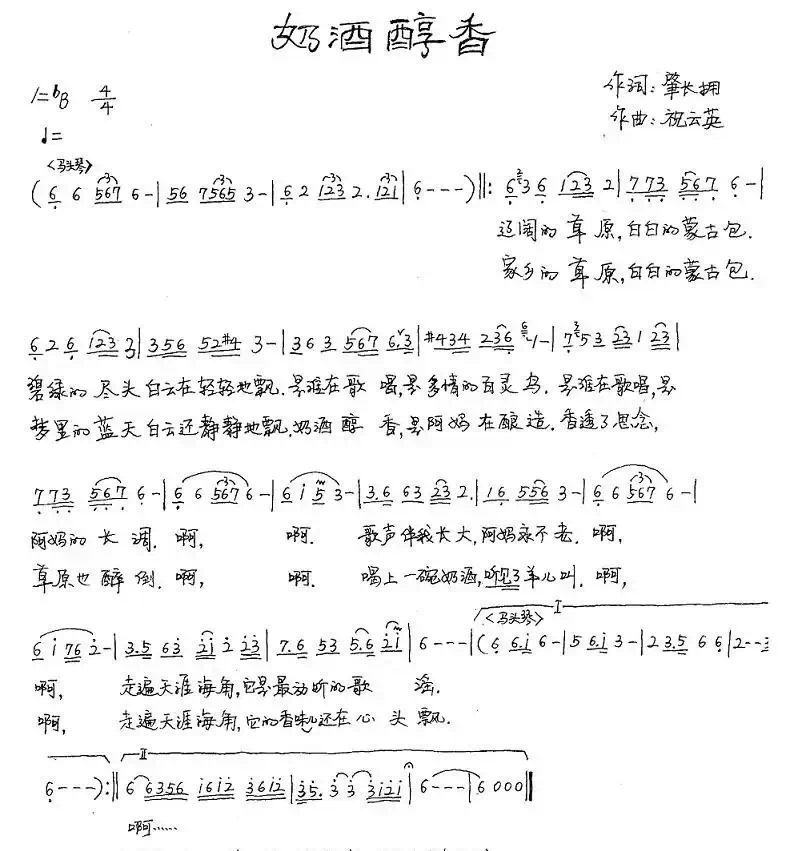 奶酒醇香
1=♭B 4/4
作词：肇长拥
作曲：祝云英
♩=
〈马头琴〉
(6 6 567 6-|56 7565 3-|6 2 123 2. 121|6---)‖: 6 3 6 123 2|7 73 567 6-|
辽阔的草原,白白的蒙古包.
家乡的草原,白白的蒙古包.
6 2 6 123 3|356 52#4 3-|36 3 567 6.3|#434 236 1-|7 53 23 1 23|
碧绿的尽头白云在轻轻地飘.是谁在歌唱,是多情的百灵鸟.是谁在歌唱,是
梦里的蓝天白云还静静地飘.奶酒醇香,是阿妈在酿造.香透了思念,
7 73 567 6-|6 6 567 6-|6 i 5 3-|3.6 63 23 2.|16 556 3-|6 6 567 6-|
阿妈的长调.啊,啊.歌声伴我长大,阿妈永不老.啊,
草原也醉倒.啊,啊.喝上一碗奶酒,听见了羊儿叫.啊,
〈马头琴〉 I
6 i 76 2-|3.5 63 2i 2 23|7.6 53 5.6 2i|6---|(6 6.i 6-|5 6.i 3-|2 3.5 6 6|2--3
啊,走遍天涯海角,它是最动听的歌谣.
啊,走遍天涯海角,它的香味儿还在心头飘.
II
6---):‖6 6356 i6i2 36i2|35. 3 3 3i2i|6---|6000‖
啊……